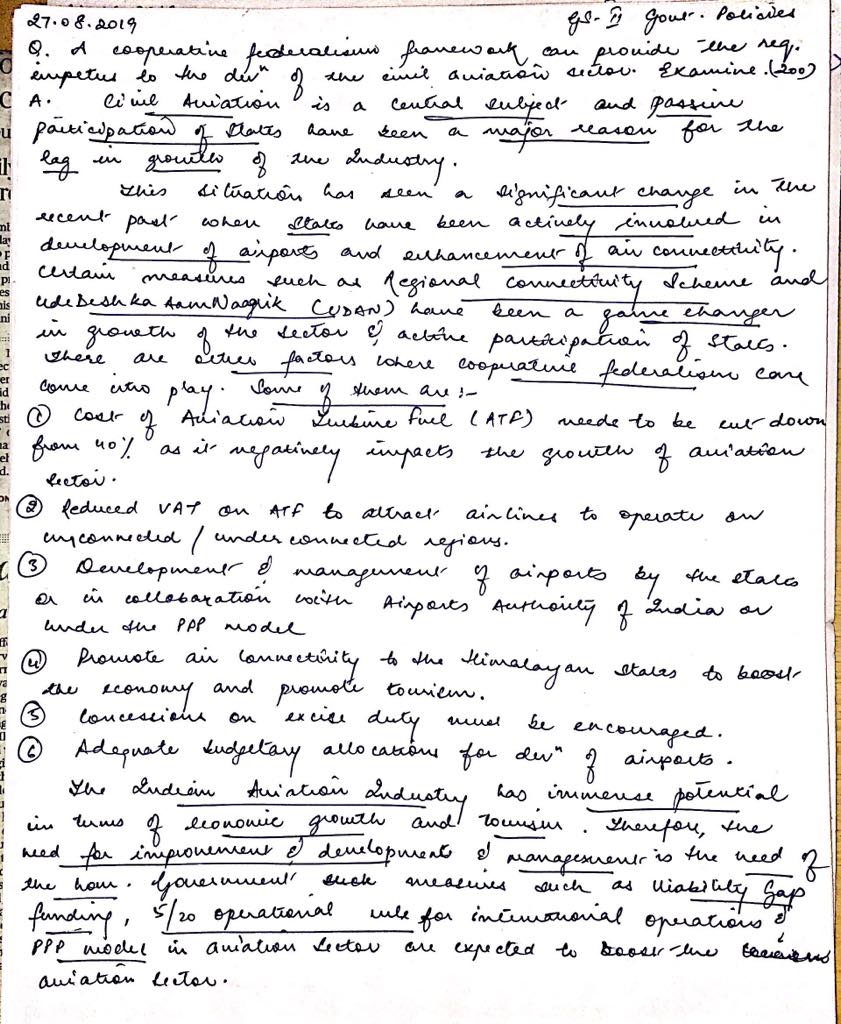 27.08.2019 GS-II Govt. Policies
Q. A cooperative federalism framework can provide the req.
impetus to the devⁿ of the civil aviation sector. Examine. (200)
A. Civil Aviation is a central subject and passive
participation of States have been a major reason for the
lag in growth of the Industry.
This situation has seen a significant change in the
recent past when States have been actively involved in
development of airports and enhancement of air connectivity.
Certain measures such as Regional connectivity Scheme and
Ude Desh ka Aam Naagrik (UDAN) have been a game changer
in growth of the sector & active participation of States.
There are other factors where cooperative federalism can
come into play. Some of them are :-
① Cost of Aviation Turbine Fuel (ATF) needs to be cut down
from 40% as it negatively impacts the growth of aviation
sector.
② Reduced VAT on ATF to attract airlines to operate on
unconnected / under connected regions.
③ Development & management of airports by the states
or in collaboration with Airports Authority of India or
under the PPP model
④ Promote air connectivity to the Himalayan states to boost
the economy and promote tourism.
⑤ Concessions on excise duty must be encouraged.
⑥ Adequate budgetary allocations for devⁿ of airports.
The Indian Aviation Industry has immense potential
in terms of economic growth and tourism. Therefore, the
need for improvement & development & management is the need of
the hour. Government measures such as Viability Gap
funding, 5/20 operational rule for international operations &
PPP model in aviation sector are expected to boost the
aviation sector.